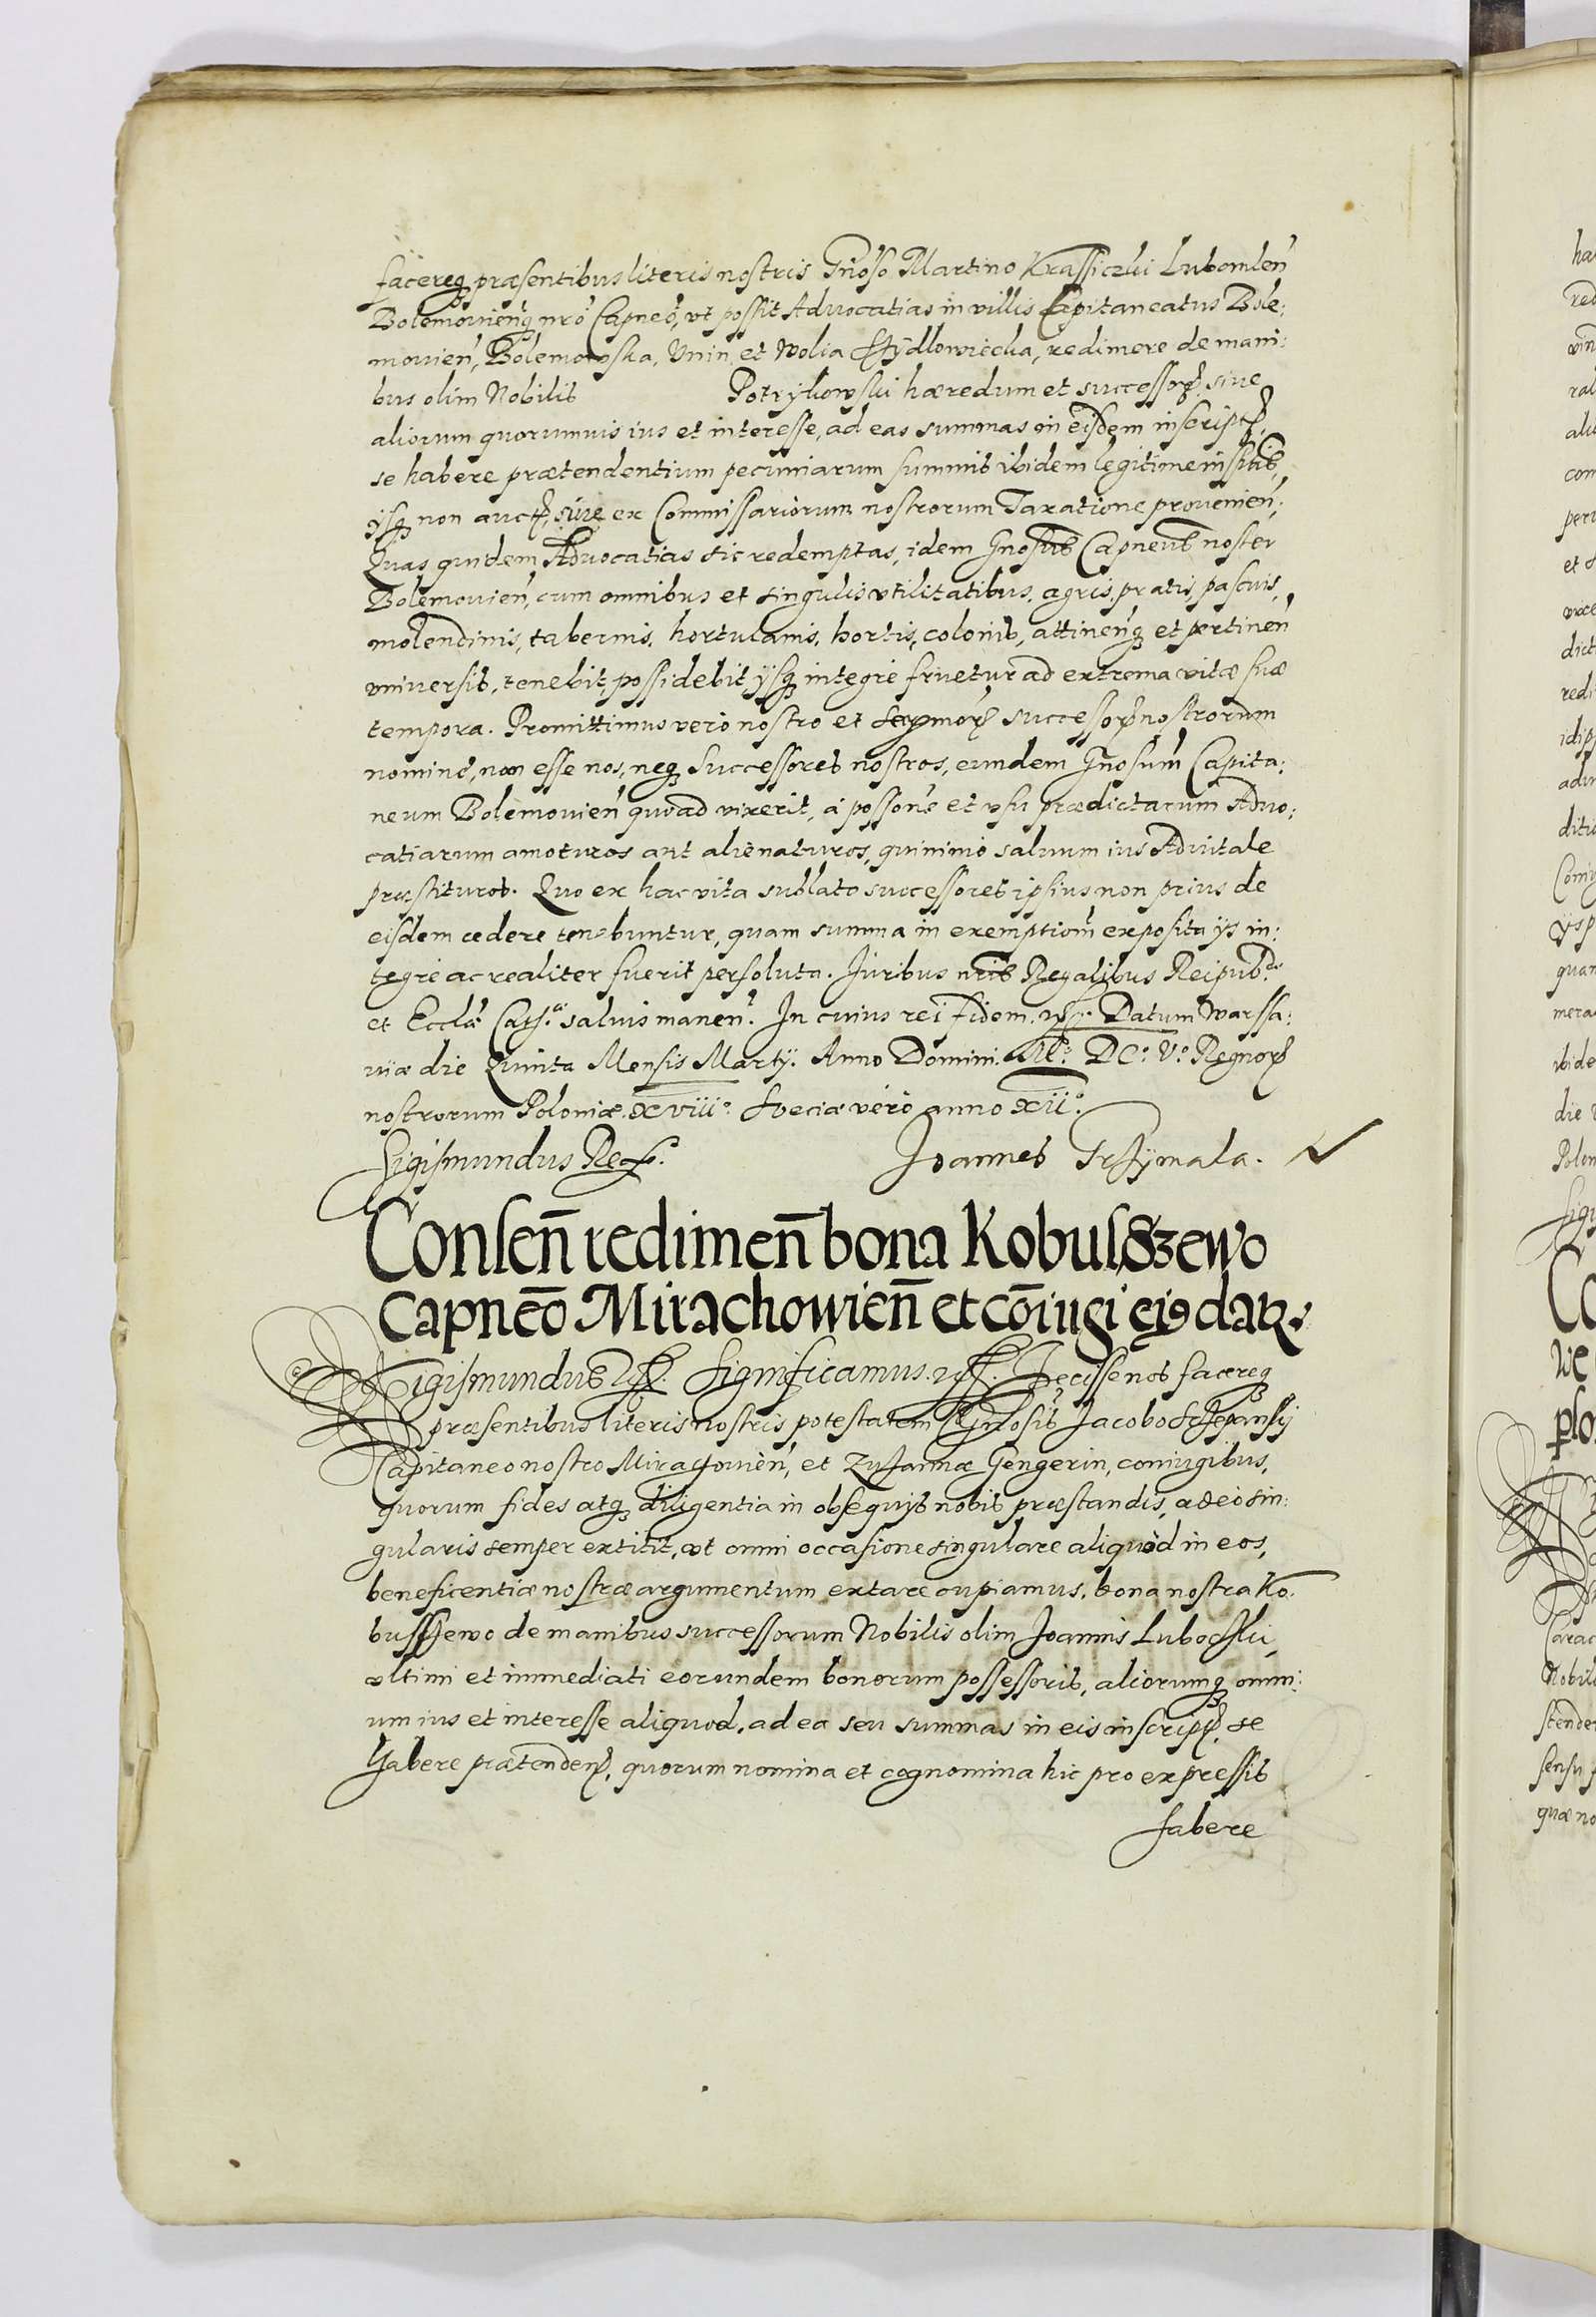 facereq₃ præsentibus literis nostris Gnoso Martino Krassiczki Lubomlen̄
Bolemovien̄q₃ nrō Capneō, vt possit Advocatias in villis Capitaneatus Bole:
movien̄, Bolemowska, Vnin, et Wolia Szydlowiecka, redimere de mani:
bus olim Nobilis Potrykowski hæredum et successoꝝ, sive
aliorum quorumvis ius et interesse, ad eas summas in eisdem inscriptꝭ,
se habere prætendentium pecuniarum summis ibidem legitime inscriptis,
ijsq₃ non auctꝭ, sive ex Commissariorum nostrorum Taxatione provenien̄:
Quas quidem Advocatias sic redemptas, idem Gnosus Capneus noster
Bolemovien̄, cum omnibus et singulis vtilitatibus, agris, pratis, pascuis,
molendinis, tabernis, hortulanis, hortis, colonis, attinen̄q₃ et pertinen̄
vniversis, tenebit, possidebit ijsq₃ integre fruetur ad extrema vitæ suæ
tempora. Promittimus vero nostro et Serenmoꝝ successoꝝ nostrorum
nomine, non esse nos, neq₃ Successores nostros, eundem Gnosum Capita:
neum Bolemovien̄ quoad vixerit, à posson̄e et vsu prædictarum Advo:
catiarum amoturos aut alienaturos, quinimo salvum ius Advitale
præstituros. Quo ex hac vita sublato successores ipsius non prius de
eisdem cedere tenebuntur, quam summa in exemption̄e exposita ijs in:
tegre ac realiter fuerit persoluta. Iuribus nris Regalibus Reipub.
et Ecclæ Cath. salvis manen̄. In cuius rei fidem. Datum Warssa:
viæ die Quinta Mensis Martij. Anno Domini. M.° DC.° V.° Regnoꝝ
nostrorum Poloniæ. XVIII.° Sveciæ vero anno XII.°
Sigismundus Rex.
Ioannes Grzymala.
Consen̄ redimen̄ bona Kobusszewo
Capneō Mirachowien̄ et cōiugi eiꝰ datꝛ.
Sigismundus Significamus. Fecisse nos facereq₃
præsentibus literis nostris potestatem Gnosis Jacobo Sczepansij
Capitaneo nostro Mirachovien̄, et Zuzannæ Gengerin, coniugibus,
quorum fides atq₃ diligentia in obsequijs nobis præstandis, adeo sin:
gularis semper extitit, vt omni occasione singulare aliquod in eos,
beneficentiæ nostræ argumentum extare cupiamus, bona nostra Ko:
busszewo de manibus successorum Nobilis olim Joannis Lubockij,
vltimi et immediati eorundem bonorum possessoris, aliorumq₃ omni:
um ius et interesse aliquod, ad ea seu summas in eis inscripꝭ, se
habere prætendenꝭ, quorum nomina et cognomina hic pro expressis
habere